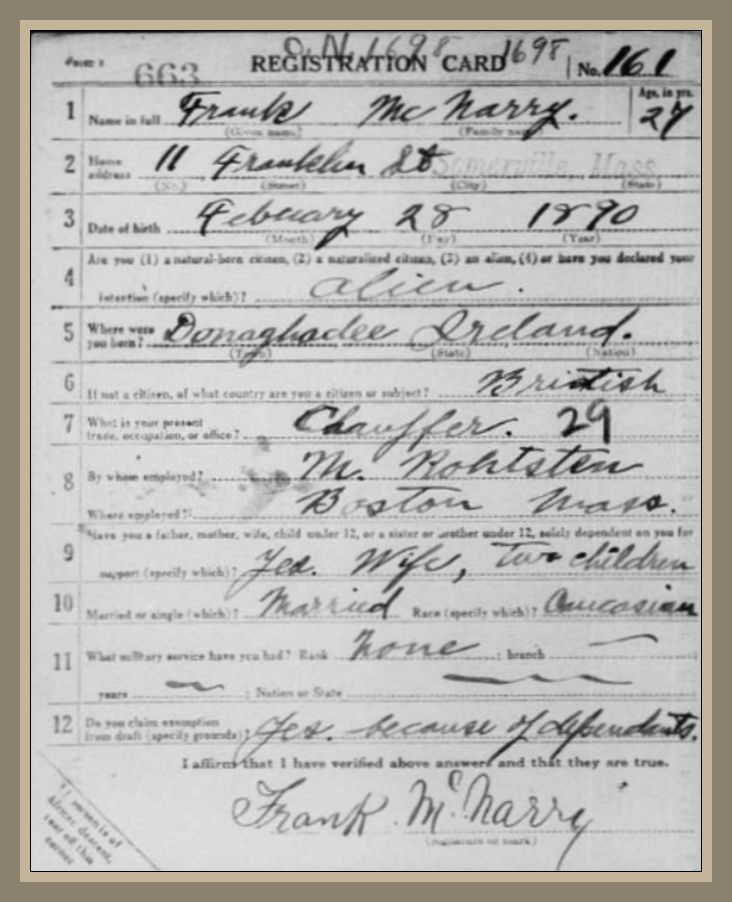 O.N. 1698 1698
Form 1 663 REGISTRATION CARD No. 161
1 Name in full Frank Mc Narry. Age, in yrs. 27
(Given name) (Family name)
2 Home address 11 Franklin St Somerville, Mass.
(No.) (Street) (City) (State)
3 Date of birth Febuary 28 1890
(Month) (Day) (Year)
4 Are you (1) a natural-born citizen, (2) a naturalized citizen, (3) an alien, (4) or have you declared your
intention (specify which)? alien.
5 Where were you born? Donaghadee Ireland.
(Town) (State) (Nation)
6 If not a citizen, of what country are you a citizen or subject? British
7 What is your present trade, occupation, or office? Chauffer. 29
8 By whom employed? M. Rohtsten
Where employed? Boston Mass.
9 Have you a father, mother, wife, child under 12, or a sister or brother under 12, solely dependent on you for
support (specify which)? Yes. Wife, two children
10 Married or single (which)? Married Race (specify which)? Caucasian
11 What military service have you had? Rank None ; branch —
years — ; Nation or State —
12 Do you claim exemption from draft (specify grounds)? Yes. because of dependants.
I affirm that I have verified above answers and that they are true.
Frank McNarry
(Signature or mark)
If person is of
African descent,
tear off this
corner